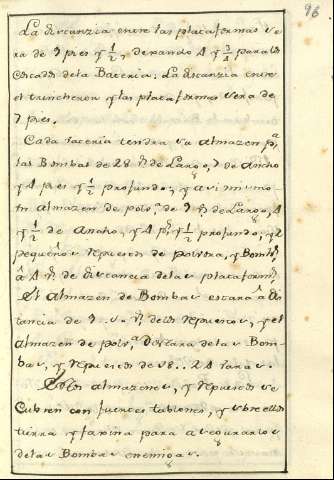 96
La distancia entre las plataformas se
ra de 9 pies y 1/2, dexando 4 y 3/4 para los
costados de la Bateria; La distancia entre
el trincheron y las plataformas sera de
7 pies.
Cada bateria tendra su almazen pa
las Bombas de 28 ps de Largo, 7 de Ancho
y 4 pies y 1/2 profundo; y asi mismo
un almazen de polva de 9 ps de Largo, 4
y 1/2 de Ancho, y 4 ps y 1/2 profundo; y 2
pequeños repuestos de polvora, y Bombs
â 4 ps de distancia de las plataforms
El almazen de Bombas estara â dis
tancia de 9 ps de los repuestos, y el
almazen de polva distara de las Bom-
bas, y repuestos de 18.. 24 varas.
Estos almazenes, y repuestos se
Cubren con fuertes tablones, y sobre ellos
tierra y faxina para asegurarlos
de las Bombas enemigas.